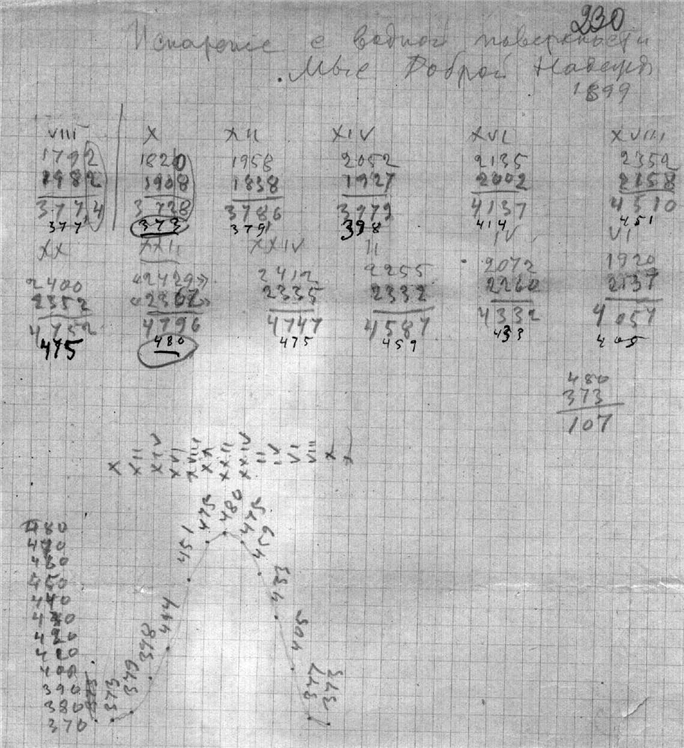 230
Испарение с водной поверхности
Мыс Доброй Надежды
1899
VIII X XII XIV XVI XVIII
1792 1820 1958 2052 2135 2352
1982 1908 1838 1927 2002 2158
3774 3728 3786 3979 4137 4510
377 373 379 398 414 451
XX XXII XXIV II IV VI
2400 «2429» 2412 2255 2072 1920
2352 «2367» 2335 2332 2260 2137
4752 4796 4747 4587 4332 4057
475 480 475 459 433 405
480
373
107
X XII XIV XVI XVIII XX XXII XXIV II IV VI VIII X
480
470
460
450
440
430
420
410
400
390
380
370
373 379 398 414 451 475 480 475 459 433 405 377 373